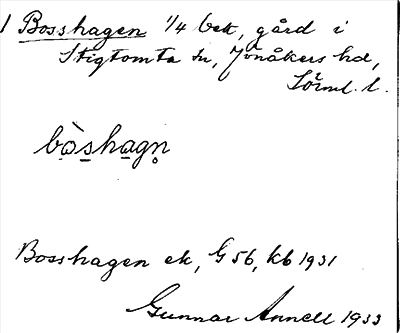 1 Bosshagen 1/4 bek, gård i
Stigtomta sn, Jönåkers hd,
Söml. l.
bòshagn̥
Bosshagen ek, G 56, kb 1931
Gunnar Annell 1933